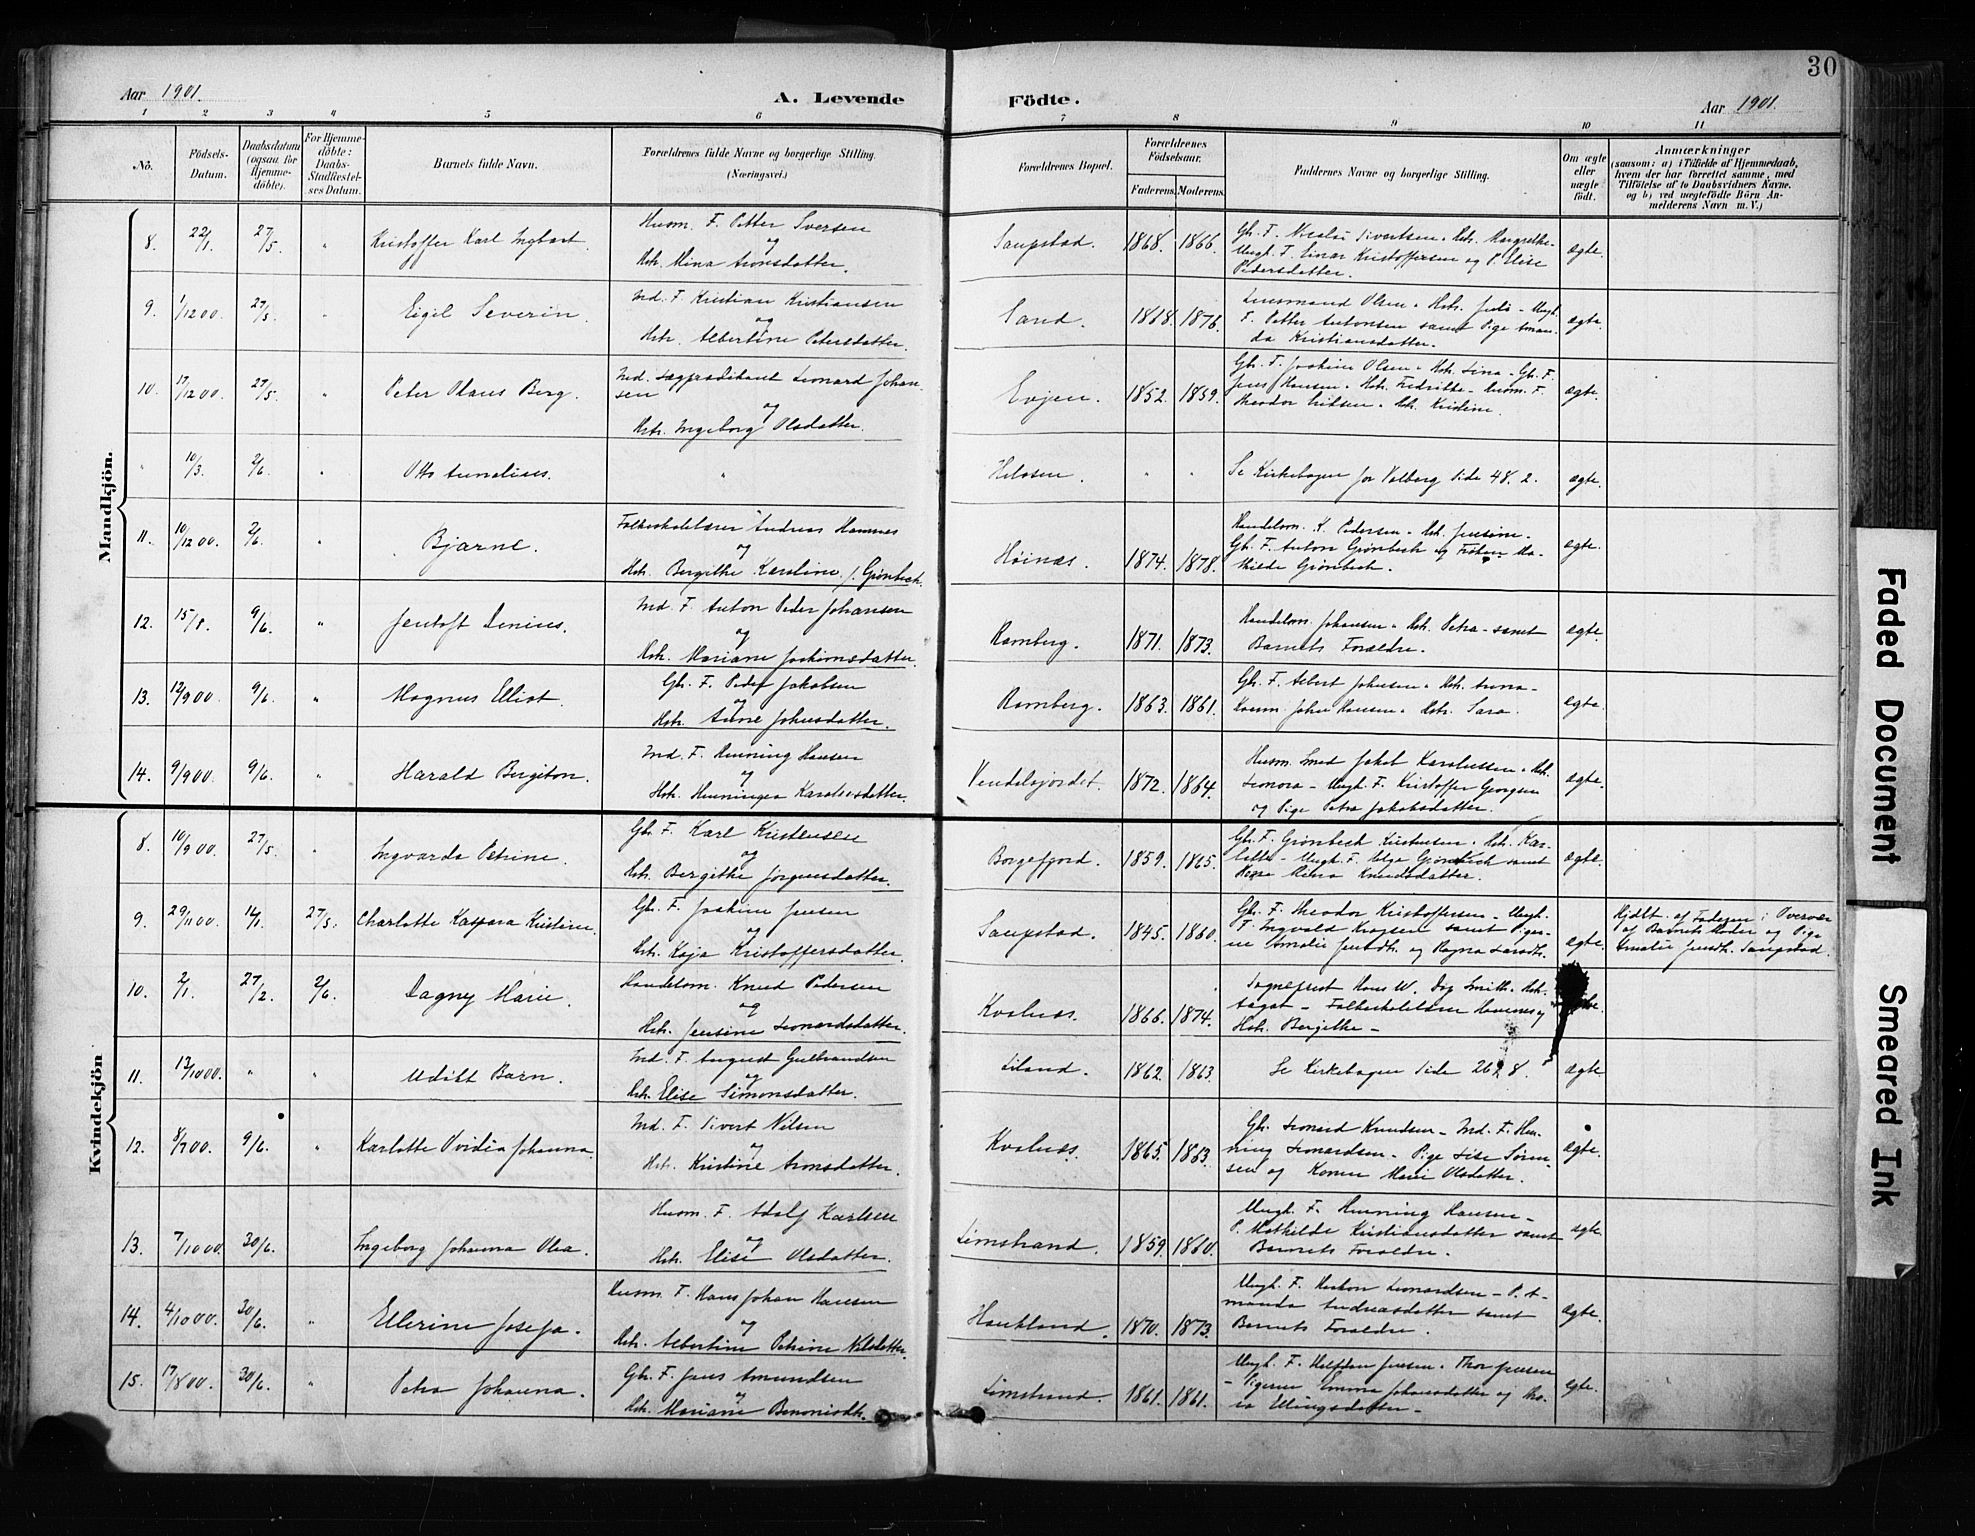 30
Aar 1901. A. Levende Födte. Aar 1901.
1 2 3 4 5 6 7 8 9 10 11
No. Födsels-Datum. Daabsdatum (ogsaa for Hjemmedöbte). For Hjemmedöbte: Daabs-Stadfæstelses Datum. Barnets fulde Navn. Forældrenes fulde Navne og borgerlige Stilling. (Næringsvei.) Forældrenes Bopæl. Forældrenes Födselsaar. Faderens. Moderens. Faddernes Navne og borgerlige Stilling. Om ægte eller uægte födt. Anmærkninger (saasom: a) i Tilfælde af Hjemmedaab, hvem der har forrettet samme, med Tilföielse af to Daabsvidners Navne, og b) ved uægtefödte Börn Anmelderens Navn m. V.)
Mandkjön.
8. 22/1. 27/5. " Kristoffer Karl Ingbart
Husm. F. Petter Sversen
og
Hst. Mina Aronsdatter.
Saupstad. 1868. 1866.
Gb. F. Sivertsen. Hst. Margrethe-
Ungk. F. Einar Kristoffersen og P. Elise
Pedersdatter.
ægte.
9. 1/12 00. 27/5. " Eigil Severin.
Ind. F. Kristian Kristiansen
og
Hst. Albertine Petersdatter.
Sand. 1868. 1876.
Lensmand Olsen. Hst. - Ungk.
F. Petter Antonsen samt Pige Aman-
da Kristiansdatter.
ægte.
10. 17/12 00. 27/5. " Peter Olaus Berg.
Ind. Lægprædikant Leonard Johan-
sen
og
Hst. Ingeborg Olsdatter.
Evjen. 1852. 1859.
Gb. F. Joakim Olsen. Hst. Lina - Gb. F.
Jens Hansen. Hst. Fredrikke - Husm. F.
Theodor Nilsen. Hst. Kristine.
ægte.
" 10/3. 2/6. " Otto Annelius.
"
Helosen. " "
Se Kirkebogen for Valberg Side 48. 2.
ægte.
11. 10/12 00. 2/6. " Bjarne.
Folkeskolelærer Andreas Hamnes
og
Hst. Bergithe Karoline f. Grønbech.
Høinæs. 1874. 1878.
Handelsm. K. Pedersen - Hst. Jensine -
Gb. F. Anton Grønbech og Frøken Ma-
thilde Grønbech.
ægte.
12. 15/8. 9/6. " Jentoft Denius.
Ind. F. Anton Peder Johansen
og
Hst. Mariane Joakimsdatter.
Ramberg. 1871. 1873.
Handelsm. Johansen. Hst. Petra - samt
Barnets Forældre.
ægte.
13. 12/9 00. 9/6. " Magnus Elliot.
Gb. F. Peder Jakobsen
og
Hst. Anne Johnsdatter.
Ramberg. 1863. 1861.
Gb. F. Albert Johnsen. Hst. Anna -
Husm. John Hansen. Hst. Sara.
ægte.
14. 9/9 00. 9/6. " Harald Bergiton.
Ind. F. Henning Hansen
og
Hst. Henningea Karolusdatter.
Vendelsjordet. 1872. 1864.
Husm. Smed Jakob Karolussen. Hst.
Leonora - Ungk. F. Kristoffer Georgsen
og Pige Petra Jakobsdatter.
ægte.
Kvindekjön
8. 10/9 00. 27/5. " Ingvarda Petrine.
Gb. F. Karl Kristensen
og
Hst. Bergithe Jørgensdatter.
Borgefjord. 1859. 1865.
Gb. F. Grønbech Kristensen. Hst. Kar-
lotte - Ungk. F. Helge Grønbech samt
Knudsdatter.
ægte.
9. 29/11 00. 14/1. 27/5. Charlotte Kaspara Kristine.
Gb. F. Joakim Jensen
og
Hst. Kaja Kristoffersdatter.
Saupstad. 1845. 1860.
Gb. F. Theodor Kristoffersen - Ungk.
F. Ingvald samt Piger-
ne Amalie Jensdt. og Ragna Larsdt.
ægte.
Hjdbt. af Faderen i Overvær
af Barnets Moder og Pige
Amalie Jensdt. Saupstad.
10. 2/1. 27/2. 2/6. Dagny Marie.
Handelsm. Knud Pedersen
og
Hst. Jensine Leonardsdatter.
Kvalnæs. 1866. 1874.
Sogneprest Hans W. Dop Smith. Hst.
Aagot - Folkeskolelærer Hamnes og
Hst. Bergithe -
11. 13/10 00. " " Udöbt Barn.
Ind. F. August Gulbrandsen
og
Hst. Elise Simonsdatter.
Liland. 1862. 1863.
Se Kirkebogen Side 26. 8.
ægte.
12. 8/7 00. 9/6. " Karlotte Ovidia Johanna.
Ind. F. Sivert Nilsen
og
Hst. Kristine Aronsdatter.
Kvalnæs. 1865. 1863.
Gb. Leonard Knudsen - Ind. F. Hen-
ning Leonardsen - Pige Lise Søren-
sen og Konen Marie Olsdatter.
ægte.
13. 7/10 00. 30/6. " Ingeborg Johanna Olea.
Husm. F. Adolf Karlsen
og
Hst. Elise Olsdatter.
Limstrand. 1859. 1860.
Ungk. F. Henning Hansen -
P. Mathilde Kristiansdatter samt
Barnets Forældre.
ægte.
14. 4/10 00. 30/6. " Ellerine Josefa.
Husm. F. Hans Johan Hansen
og
Hst. Albertine Petrine Nilsdatter.
Haukland. 1870. 1873.
Ungk. F. Leonardsen - P. A-
manda Andreasdatter samt
Barnets Forældre.
ægte.
15. 17/8 00. 30/6. " Petra Johanna.
Gb. F. Jens Amundsen
og
Hst. Mariane Benonisdt.
Limstrand. 1861. 1861.
Ungk. F. Halfdan Jensen. Thor Jensen
- Pigerne Emma Johansdatter og Ma-
ria Ellingsdatter -
ægte.
Faded Document
Smeared Ink